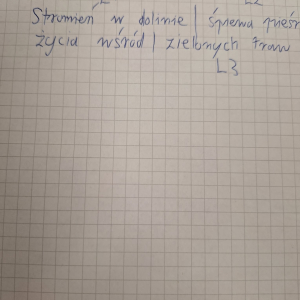 Strumień w dolinie | śpiewa pieśń
życia wśród | zielonych traw
L3